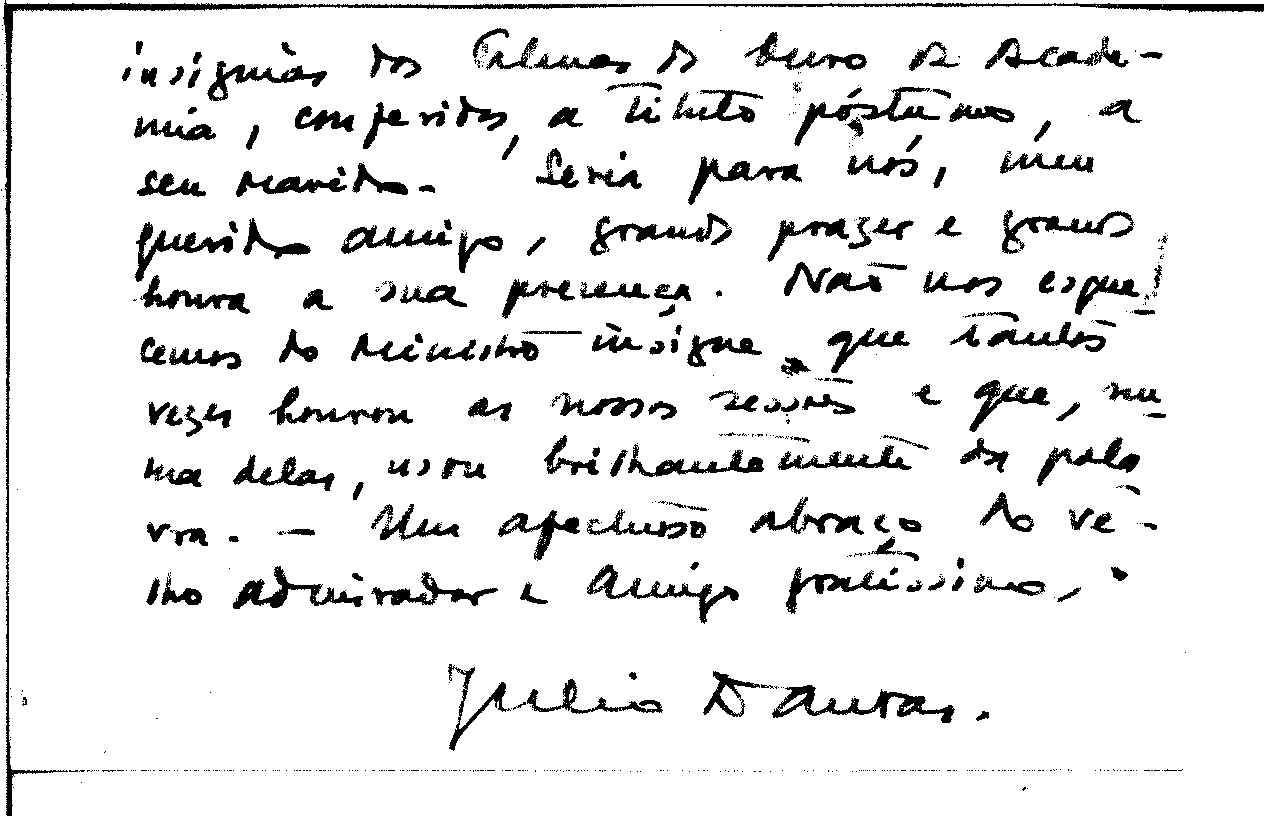 insignias das Palmas de Ouro da Acade-
mia, conferidas, a titulo póstumo, a
seu marido. Seria para nós, meu
querido amigo, grande prazer e grande
honra a sua presença. Não nos esque-
cemos do Ministro insigne que tantas
vezes honrou as nossas sessões e que, nu-
ma delas, usou brilhantemente da pala
vra. — Um afectuoso abraço do ve-
lho admirador e amigo gratissimo,
Julio Dantas.